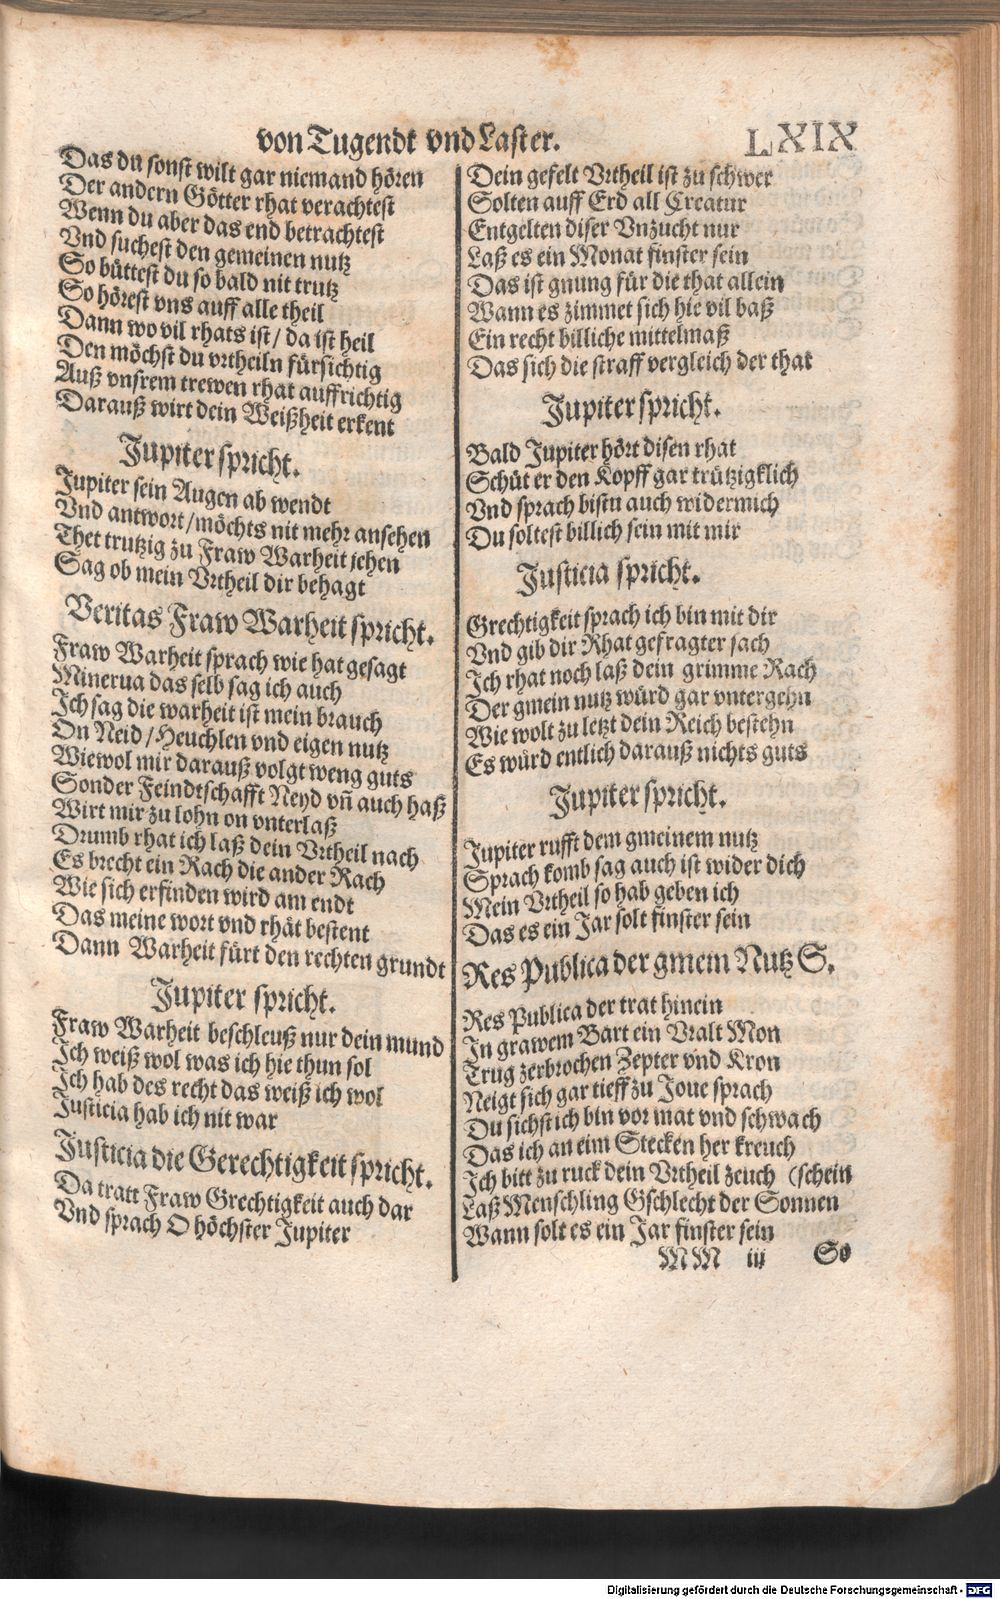 von Tugendt vnd Laster.
LXIX
Das du sonst wilt gar niemand hören
Der andern Götter rhat verachtest
Wenn du aber das end betrachtest
Vnd suchest den gemeinen nutz
So büttest du so bald nit trutz
So hörest vns auff alle theil
Dann wo vil rhats ist / da ist heil
Den möchst du vrtheiln fürsichtig
Auß vnsrem trewen rhat auffrichtig
Darauß wirt dein Weißheit erkent
Jupiter spricht.
Jupiter sein Augen ab wendt
Vnd antwort / möchts nit mehr ansehen
Thet trutzig zu Fraw Warheit jehen
Sag ob mein Vrtheil dir behagt
Veritas Fraw Warheit spricht.
Fraw Warheit sprach wie hat gesagt
Minerua das selb sag ich auch
Ich sag die warheit ist mein brauch
On Neid / Heuchlen vnd eigen nutz
Wiewol mir darauß volgt weng guts
Sonder Feindtschafft Neyd vñ auch haß
Wirt mir zu lohn on vnterlaß
Drumb rhat ich laß dein Vrtheil nach
Es brecht ein Rach die ander Rach
Wie sich erfinden wird am endt
Das meine wort vnd rhät bestent
Dann Warheit fürt den rechten grundt
Jupiter spricht.
Fraw Warheit beschleuß nur dein mund
Ich weiß wol was ich hie thun sol
Ich hab des recht das weiß ich wol
Justicia hab ich nit war
Justicia die Gerechtigkeit spricht.
Da tratt Fraw Grechtigkeit auch dar
Vnd sprach O höchster Jupiter
Dein gefelt Vrtheil ist zu schwer
Solten auff Erd all Creatur
Entgelten diser Vnzucht nur
Laß es ein Monat finster sein
Das ist gnung für die that allein
Wann es zimmet sich hie vil baß
Ein recht billiche mittelmaß
Das sich die straff vergleich der that
Jupiter spricht.
Bald Jupiter hört disen rhat
Schüt er den Kopff gar trützigklich
Vnd sprach bistu auch wider mich
Du soltest billich sein mit mir
Justicia spricht.
Grechtigkeit sprach ich bin mit dir
Vnd gib dir Rhat gefragter sach
Ich rhat noch laß dein grimme Rach
Der gmein nutz würd gar vntergehn
Wie wolt zu letzt dein Reich bestehn
Es würd entlich darauß nichts guts
Jupiter spricht.
Jupiter rufft dem gmeinem nutz
Sprach komb sag auch ist wider dich
Mein Vrtheil so hab geben ich
Das es ein Jar solt finster sein
Res Publica der gmein Nutz S.
Res Publica der trat hinein
In grawem Bart ein Vralt Mon
Trug zerbrochen Zepter vnd Kron
Neigt sich gar tieff zu Joue sprach
Du sichst ich bin vor mat vnd schwach
Das ich an eim Stecken her kreuch
Ich bitt zu ruck dein Vrtheil zeuch (schein
Laß Menschling Gschlecht der Sonnen
Wann solt es ein Jar finster sein
MM iij
So
Digitalisierung gefördert durch die Deutsche Forschungsgemeinschaft - DFG